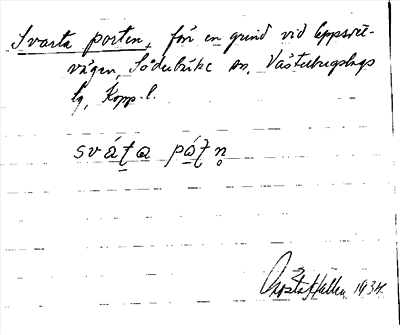 Svarta porten, för en grind vid Uppsrēt-
vägen, Söderbärke sn, Västerbergslags
tg, Kopp. l.
sváṭa páṭṇ
Gösta Hallen 1934.